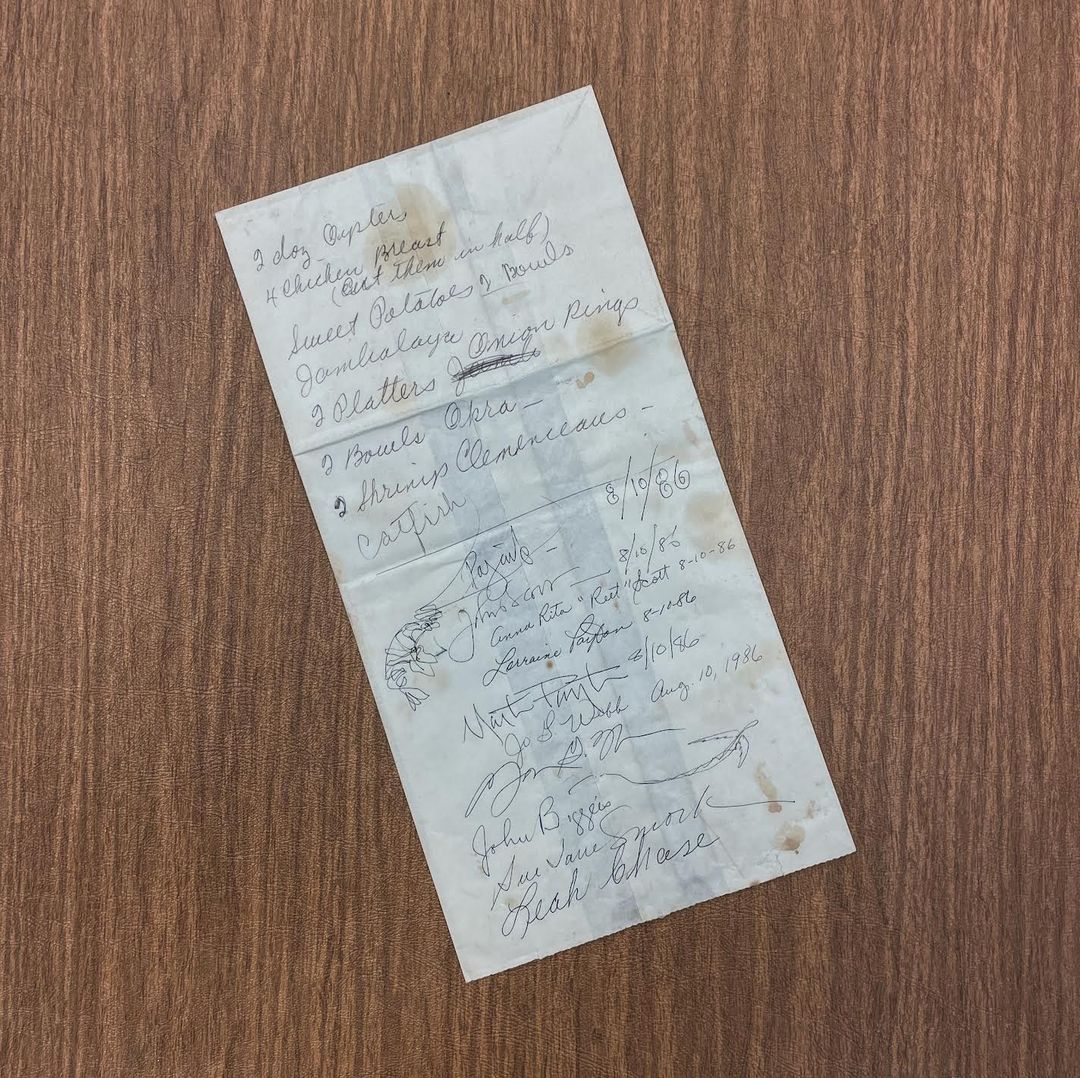 2 doz Oysters
4 Chicken Breast
(Cut them in half)
Sweet Potatoes 2 Bowls
Jambalaya
2 Platters Onion Rings
2 Bowls Okra —
2 Shrimp Clemenceaus —
Catfish
8/10/86
John Scott — 8/10/86
Anna Rita "Ret" Scott 8-10-86
Lorraine Payton 8-10-86
Martin Payton 8/10/86
Jo S. Webb Aug. 10, 1986
John Biggers
Sue Jane Smock
Leah Chase